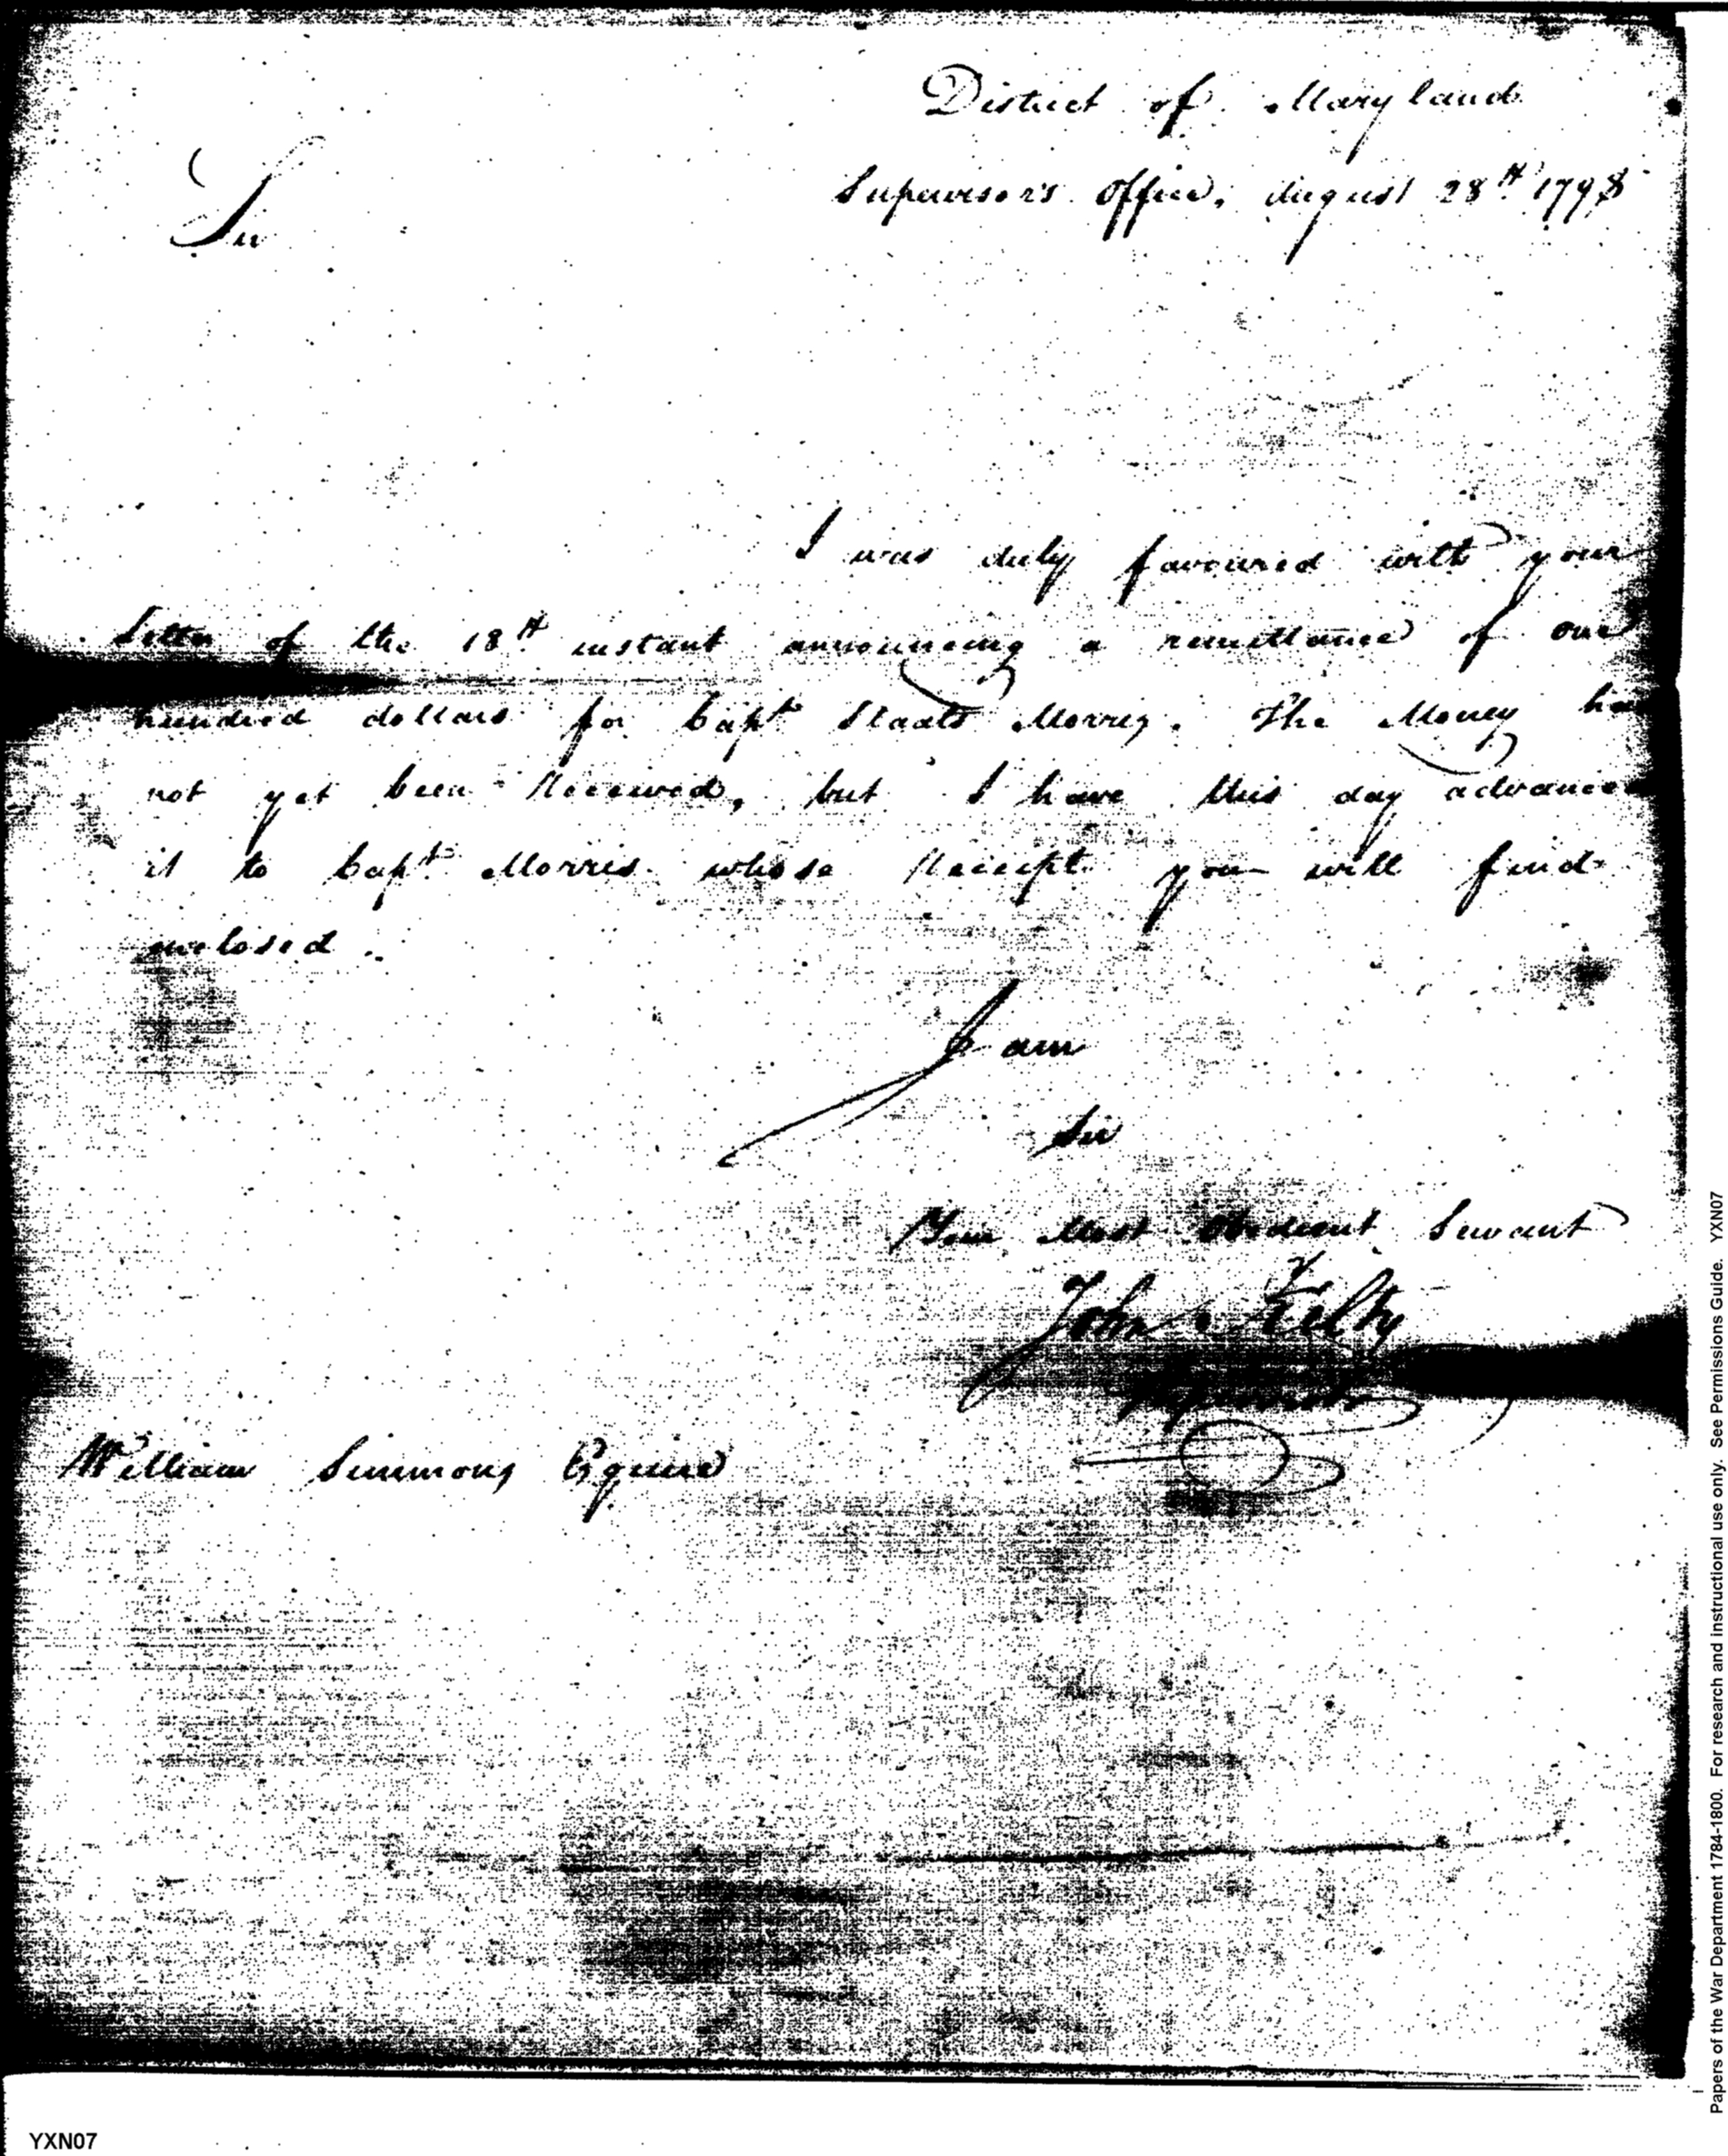 District of Maryland
Supervisor's Office, August 28th 1798
Sir
I was duly favoured with your
Letter of the 18th instant announcing a remittance of one
hundred dollars for Capt Staats Morris. The Money has
not yet been Received, but I have this day advanced
it to Capt Morris whose Receipt you will find
inclosed.
I am
Sir
Your Most Obedient Servant
John Kilty
Supervisor
William Simmons Esquire
Papers of the War Department 1784-1800. For research and instructional use only. See Permissions Guide. YXN07
YXN07